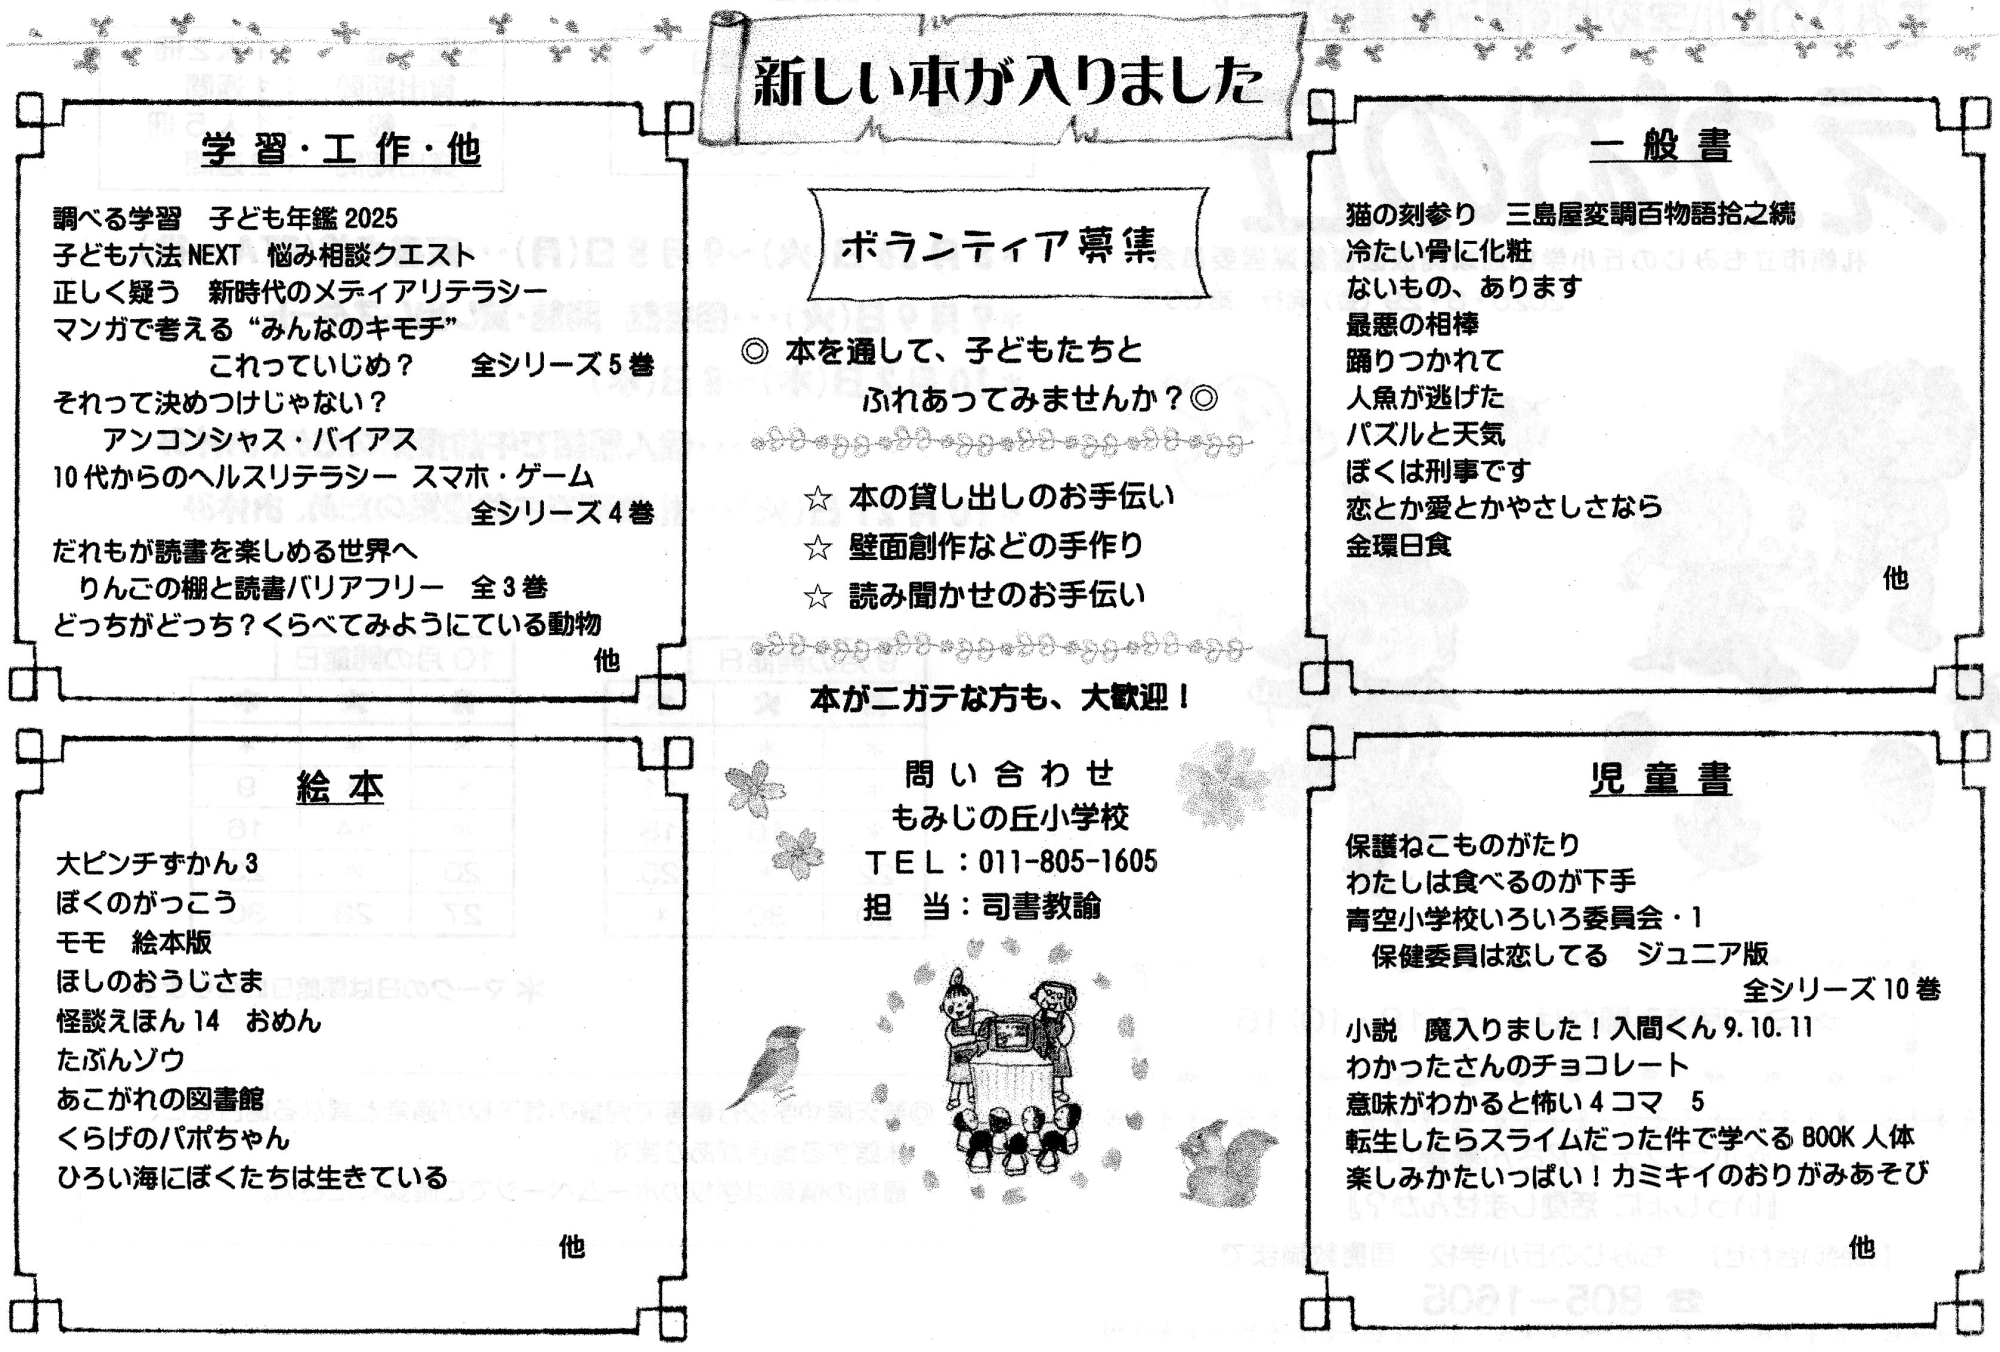 新しい本が入りました
学習・工作・他
調べる学習　子ども年鑑2025
子ども六法NEXT　悩み相談クエスト
正しく疑う　新時代のメディアリテラシー
マンガで考える“みんなのキモチ”
これっていじめ？　全シリーズ5巻
それって決めつけじゃない？
アンコンシャス・バイアス
10代からのヘルスリテラシー スマホ・ゲーム
全シリーズ4巻
だれもが読書を楽しめる世界へ
りんごの棚と読書バリアフリー　全3巻
どっちがどっち？くらべてみようにている動物
他
絵本
大ピンチずかん3
ぼくのがっこう
モモ　絵本版
ほしのおうじさま
怪談えほん14　おめん
たぶんゾウ
あこがれの図書館
くらげのパポちゃん
ひろい海にぼくたちは生きている
他
ボランティア募集
◎ 本を通して、子どもたちと
ふれあってみませんか？◎
☆ 本の貸し出しのお手伝い
☆ 壁面創作などの手作り
☆ 読み聞かせのお手伝い
本がニガテな方も、大歓迎！
問い合わせ
もみじの丘小学校
ＴＥＬ：011-805-1605
担　当：司書教諭
一般書
猫の刻参り　三島屋変調百物語拾之続
冷たい骨に化粧
ないもの、あります
最悪の相棒
踊りつかれて
人魚が逃げた
パズルと天気
ぼくは刑事です
恋とか愛とかやさしさなら
金環日食
他
児童書
保護ねこものがたり
わたしは食べるのが下手
青空小学校いろいろ委員会・1
保健委員は恋してる　ジュニア版
全シリーズ10巻
小説　魔入りました！入間くん9.10.11
わかったさんのチョコレート
意味がわかると怖い4コマ　5
転生したらスライムだった件で学べるBOOK人体
楽しみかたいっぱい！カミキイのおりがみあそび
他